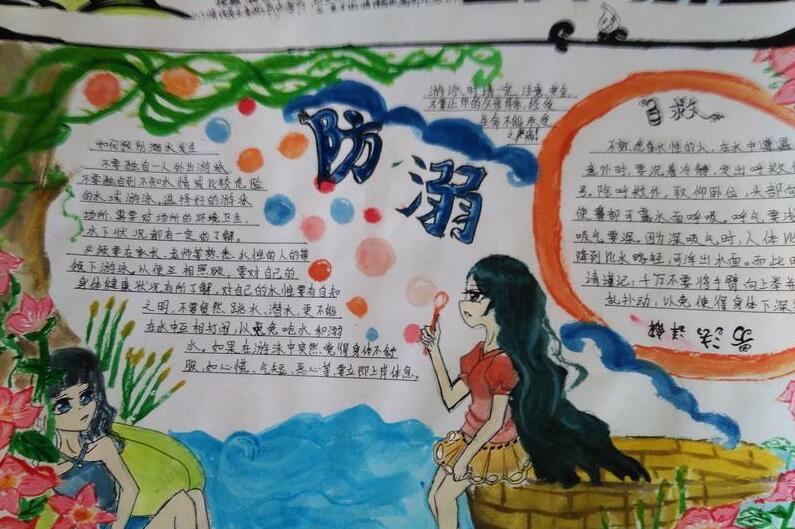 防溺
游泳时请一定注意安全
不要让你的父母
生命不能承受
之严痛!
如何预防溺水发生
不要独自一人外出游泳,
不要独自到不知水情或比较危险
的水域游泳,选择好的游泳
场所,需要对场所的环境卫生、
水下状况都有一定的了解。
必须要在家长、老师等熟悉水性的人的带
领下游泳。以便互相照顾,要对自己的
身体健康状况有所了解,对自己的水性要有自知
之明,不要贸然跳水、潜水,更不能
在水中互相打闹,以免呛水和溺
水。如果在游泳中突然觉得身体不舒
服,如心慌、气短、恶心等要立即上岸休息。
自救
不熟悉水性的人,在水中遭遇
意外时,要沉着冷静,发出呼救信
号,除呼救外,取仰卧位,头部向
使鼻部可露水面呼吸。呼气要浅
吸气要深。因为深吸气时,人体比
降到比水略轻,可浮出水面。而此时
请谨记:千万不要将手臂向上举
乱扑动,以免使得身体下沉
方法详解